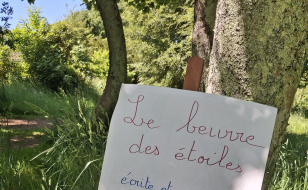 Le beurre
des étoiles
écrite et